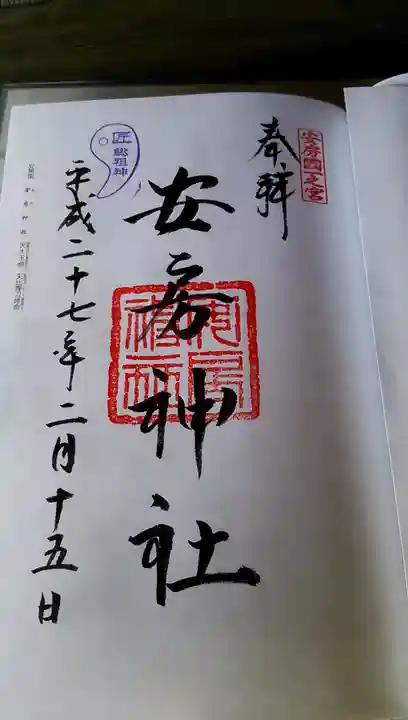 安房國一之宮
奉拝
安房神社
匠 総祖神
平成二十七年二月十五日
安房神社